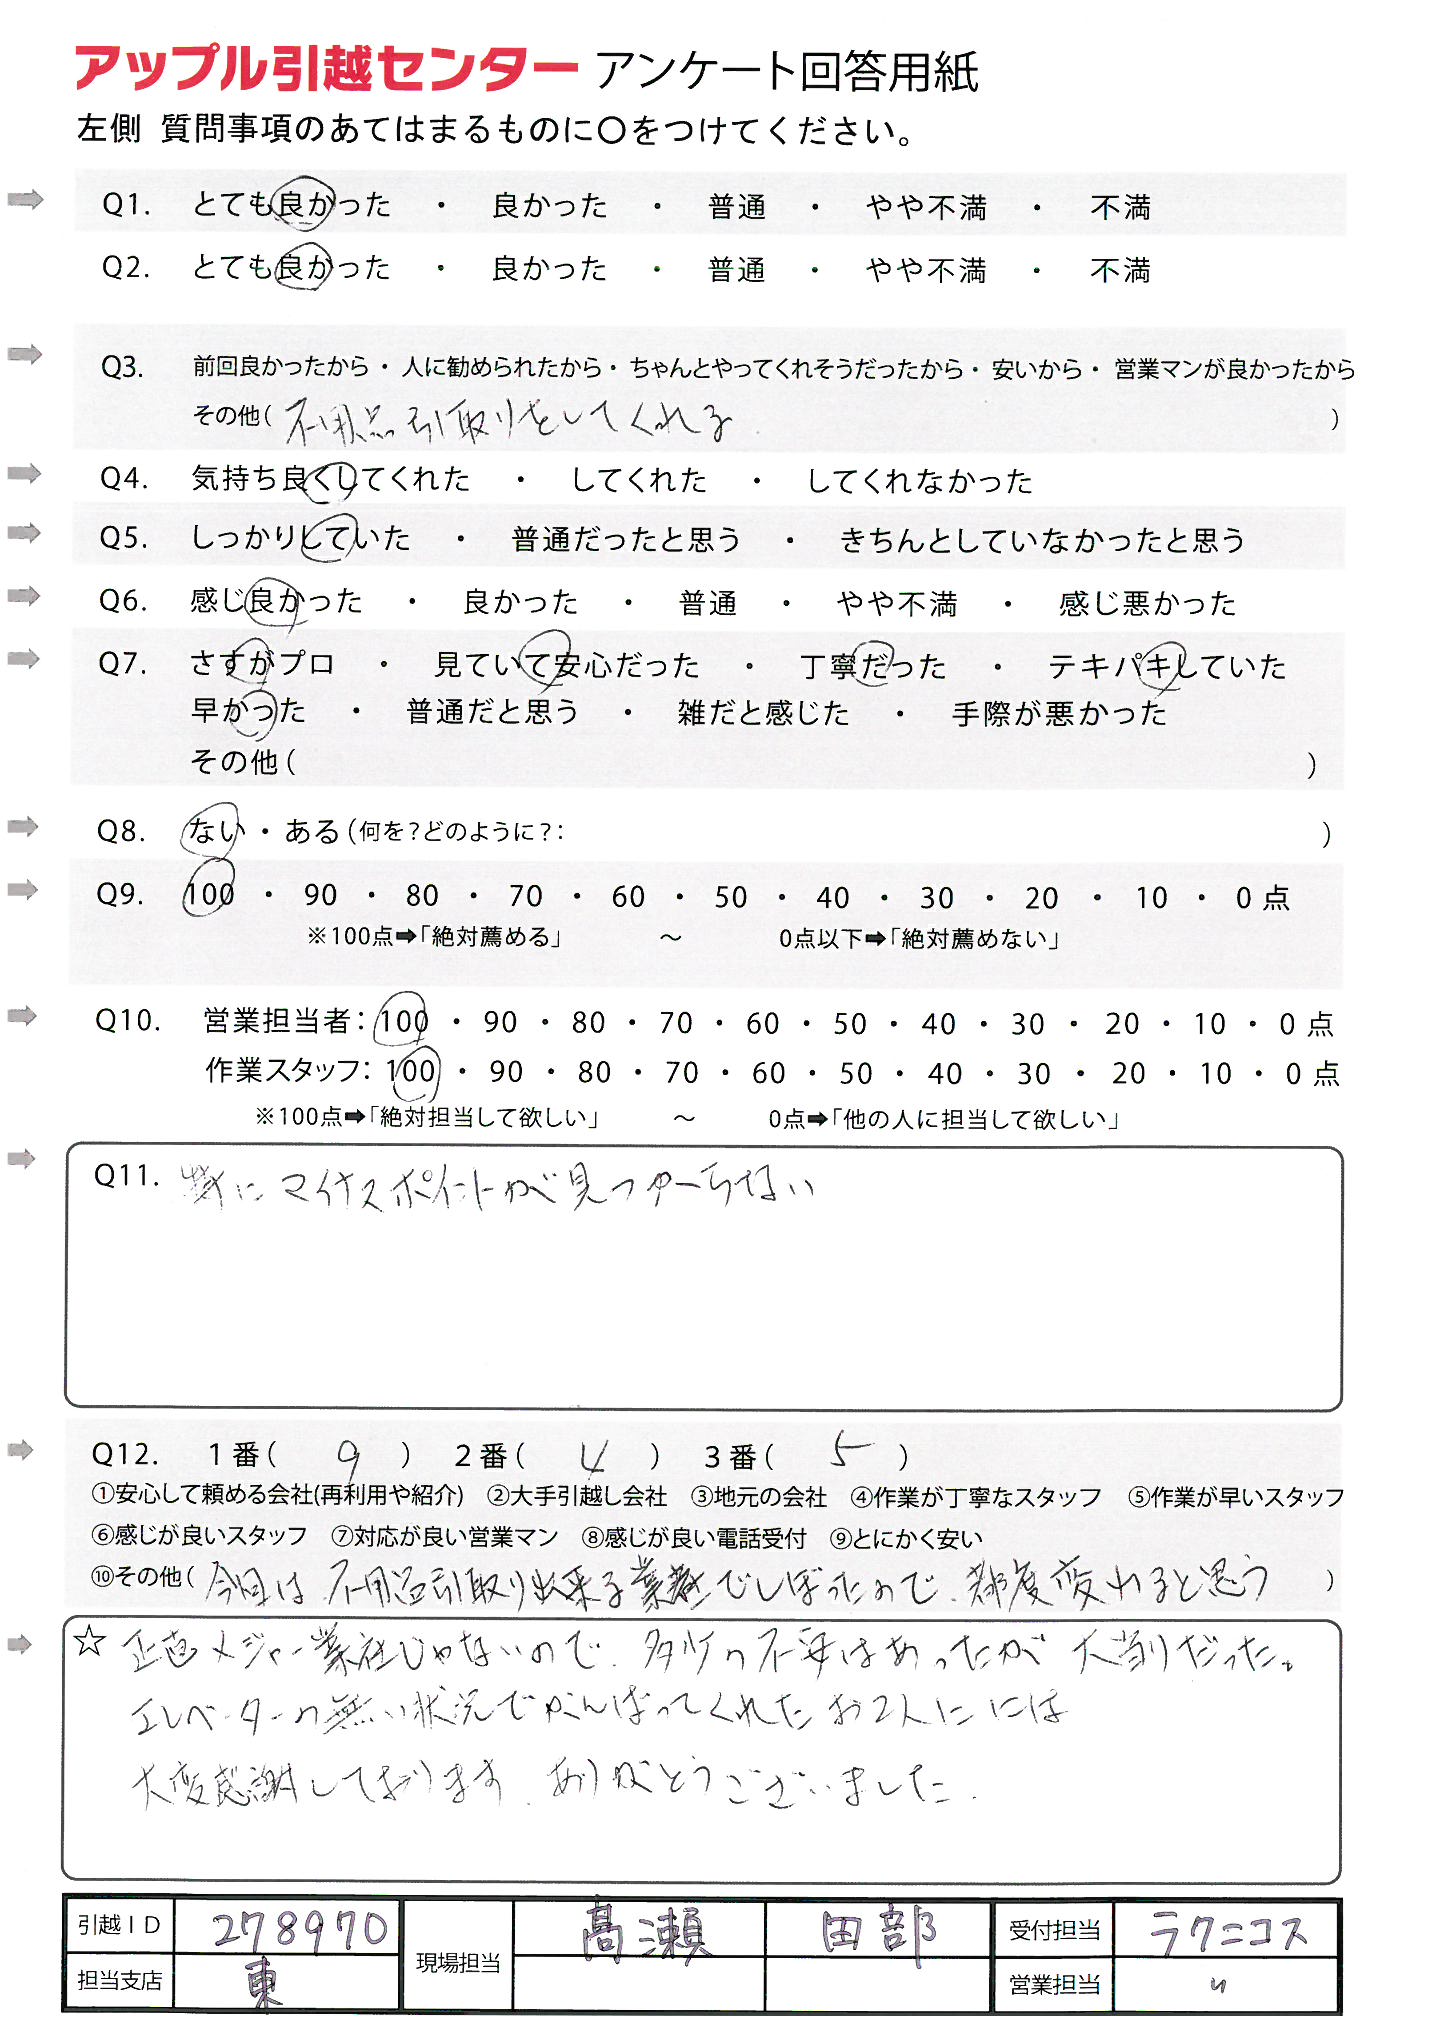 アップル引越センター アンケート回答用紙
左側 質問事項のあてはまるものに○をつけてください。
Q1. とても良かった ・ 良かった ・ 普通 ・ やや不満 ・ 不満
Q2. とても良かった ・ 良かった ・ 普通 ・ やや不満 ・ 不満
Q3. 前回良かったから・ 人に勧められたから・ ちゃんとやってくれそうだったから・ 安いから・ 営業マンが良かったから
その他( 不用品引取りをしてくれる )
Q4. 気持ち良くしてくれた ・ してくれた ・ してくれなかった
Q5. しっかりしていた ・ 普通だったと思う ・ きちんとしていなかったと思う
Q6. 感じ良かった ・ 良かった ・ 普通 ・ やや不満 ・ 感じ悪かった
Q7. さすがプロ ・ 見ていて安心だった ・ 丁寧だった ・ テキパキしていた
早かった ・ 普通だと思う ・ 雑だと感じた ・ 手際が悪かった
その他( )
Q8. ない ・ ある(何を?どのように?: )
Q9. 100 ・ 90 ・ 80 ・ 70 ・ 60 ・ 50 ・ 40 ・ 30 ・ 20 ・ 10 ・ 0 点
※100点➡「絶対薦める」 ~ 0点以下➡「絶対薦めない」
Q10. 営業担当者: 100 ・ 90 ・ 80 ・ 70 ・ 60 ・ 50 ・ 40 ・ 30 ・ 20 ・ 10 ・ 0 点
作業スタッフ: 100 ・ 90 ・ 80 ・ 70 ・ 60 ・ 50 ・ 40 ・ 30 ・ 20 ・ 10 ・ 0 点
※100点➡「絶対担当して欲しい」 ~ 0点➡「他の人に担当して欲しい」
Q11. 特にマイナスポイントが見つからない
Q12. 1番( 9 ) 2番( 4 ) 3番( 5 )
①安心して頼める会社(再利用や紹介) ②大手引越し会社 ③地元の会社 ④作業が丁寧なスタッフ ⑤作業が早いスタッフ
⑥感じが良いスタッフ ⑦対応が良い営業マン ⑧感じが良い電話受付 ⑨とにかく安い
⑩その他( 今回は不用品引取り出来る業社でしぼったので、都度変わると思う )
☆ 正直メジャー業社じゃないので、多少の不安はあったが 大当りだった。
エレベーターの無い状況でがんばってくれたお2人にには
大変感謝しております。ありがとうございました。
引越ID 278970 現場担当 髙瀬 田部 受付担当 ラクニコス
担当支店 東 営業担当 〃